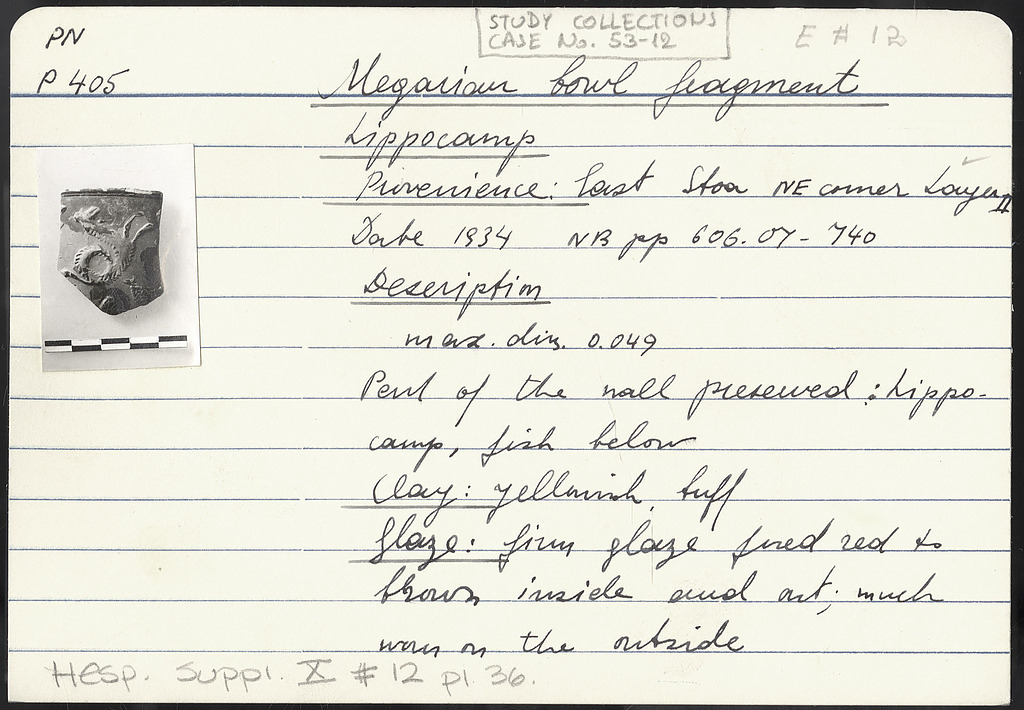 PN
STUDY COLLECTIONS
CASE No. 53-12
E # 12
P 405
Megarian bowl fragment
hippocamp
Provenience: East Stoa NE corner Layer II
Date 1934 NB pp 606.07-740
Description
max. dim. 0.049
Part of the wall preserved: hippo-
camp, fish below
Clay: yellowish buff
Glaze: firm glaze fired red to
brown inside and out; much
worn on the outside
Hesp. Suppl. X # 12 pl. 36.